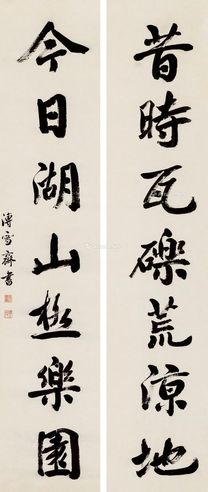 昔時瓦礫荒涼地
今日湖山極樂園
溥雪齋書